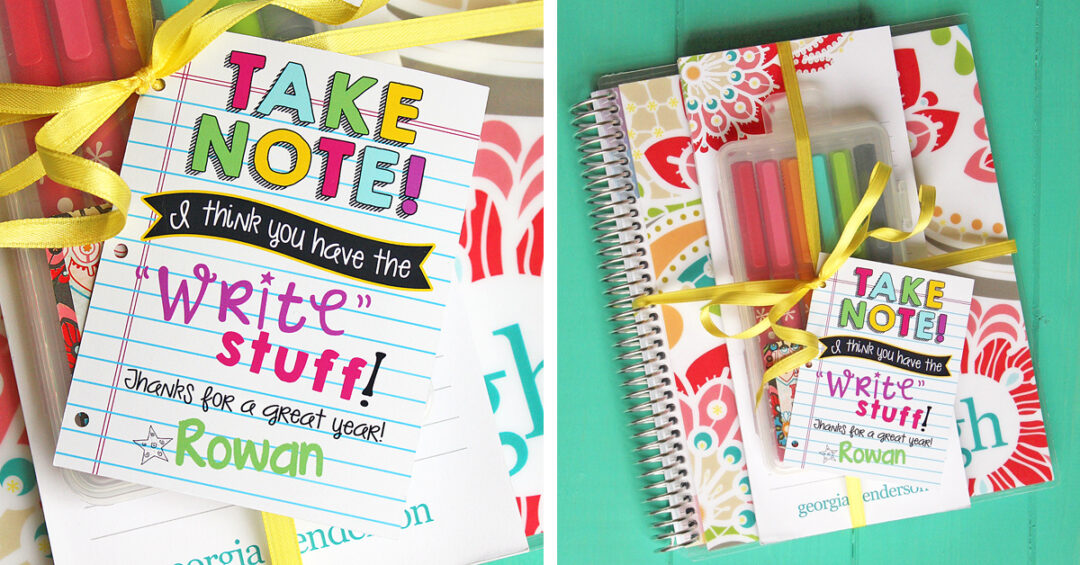 TAKE
NOTE!
I think you have the
"Write"
stuff!
Thanks for a great year!
Rowan
georgia enderson
gh
TAKE
NOTE!
I think you have the
"Write"
stuff!
Thanks for a great year!
Rowan
gh
georgia enderson